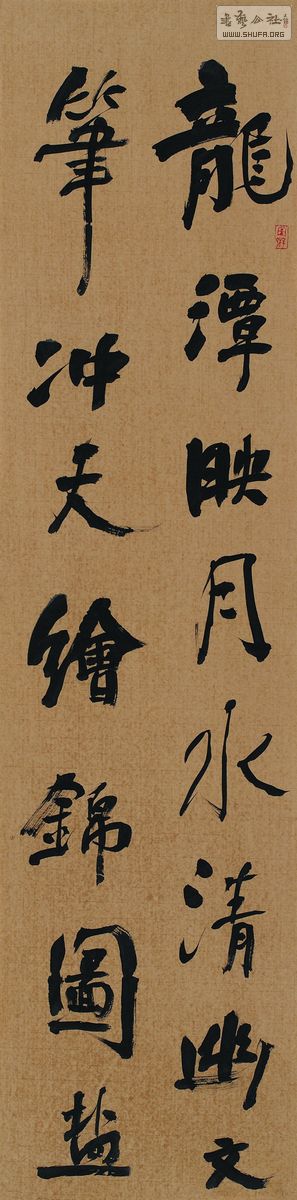 龍潭映月水清幽文
筆冲天繪錦圖盐
書藝公社
WWW.SHUFA.ORG